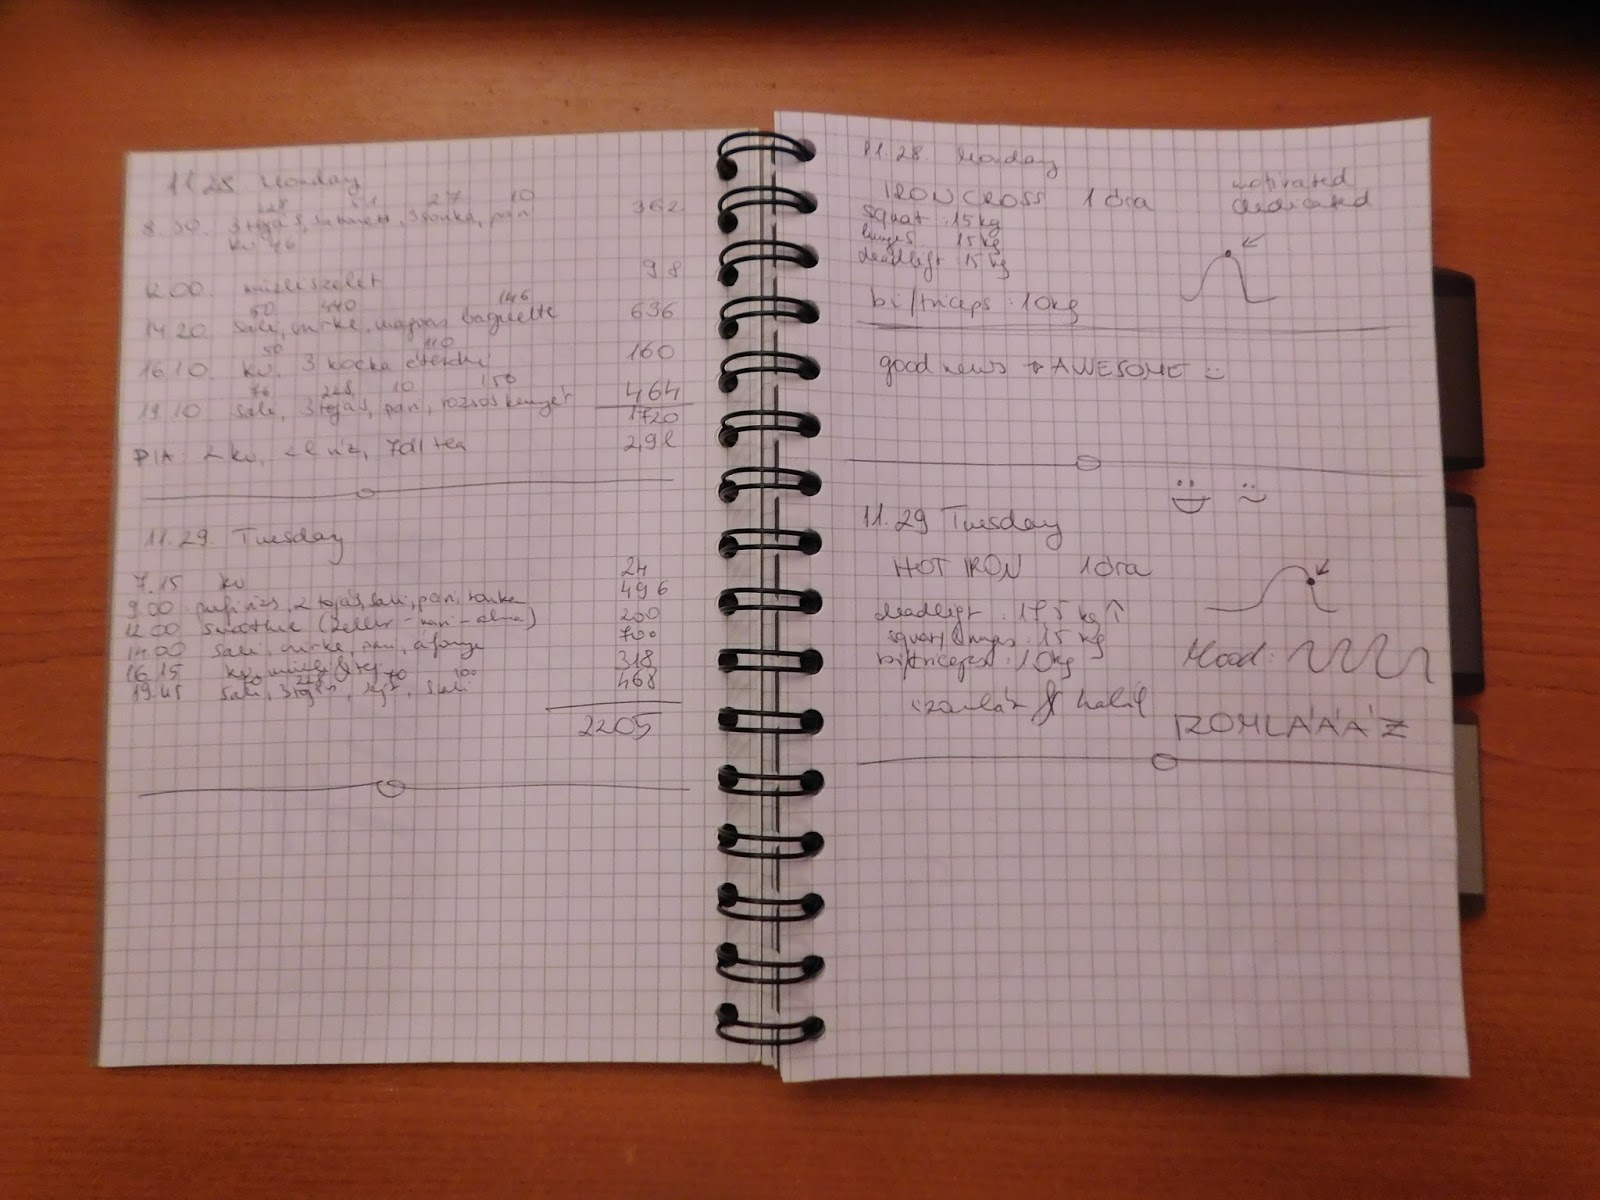 11.28 Monday
228 27 10
8.30 3 tojás, 3 sonka, pari 362
kv 46
12.00 müzliszelet 98
50 440 146
14.20 sali, csirke, magvas baguette 636
50 110
16.10 kv. 3 kocka étcsoki 160
76 228 10 150
19.10 sali, 3 tojás, pari, rozsos kenyér 464
1720
PIA: 2 kv, 2l víz, 7dl tea 2,9l
11.29. Tuesday
7.15 kv 24
9.00 2 tojás, sali, pari, sonka 496
12.00 smoothie (zeller - nari - alma) 200
14.00 sali, csirke, pari, áfonya 700
16.15 kv, 318
19.45 sali, 3 tojás, sali 468
2205
11.28. Monday
IRON CROSS 1 óra
motivated
dedicated
squat : 15 kg
lunges 15 kg
deadlift : 15 kg
bi/triceps : 10kg
good news → AWESOME :)
11.29 Tuesday
HOT IRON 1 óra
deadlift : 17,5 kg ↑
squat & lunges : 15 kg
bi/triceps : 10kg
Mood:
izomláz &
IZOMLÁÁÁZ